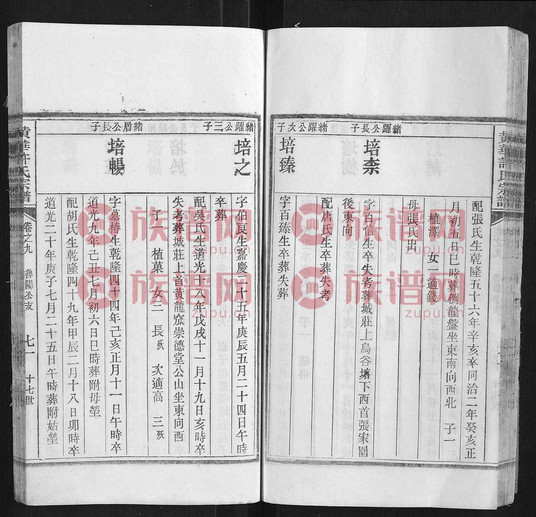 黄華許氏宗譜
配張氏生乾隆五十六年辛亥卒同治二年癸亥正
月初五日巳時葬倒龍盤坐東南向西北 子一
植澤 女一適錢
母張氏出
緒躍公長子
培柰
字百信生卒失考葬城莊上烏谷塘下西首張家園
後東向
配唐氏生卒葬失考
緒躍公次子
培臻
字百臻生卒葬失葬
緒躍公三子
培之
字伯良生嘉慶二十五年庚辰五月二十四日午時
卒葬
配吳氏生道光十八年戊戌十一月十九日亥時卒
失考葬城莊上省黄龍窟崇德堂公山坐東向西
子一 植菓 女三 長 次適高 三
緒眉公長子
培暢
字嘉椿生乾隆四十四年己亥正月十一日午時卒
道光九年己丑七月初六日巳時葬附母塋
配胡氏生乾隆四十九年甲辰二月十八日卯時卒
道光二十年庚子七月二十五日午時葬附姑塋
黄華許氏宗譜
卷之九
七一
十七世
族谱网
zupu.cn